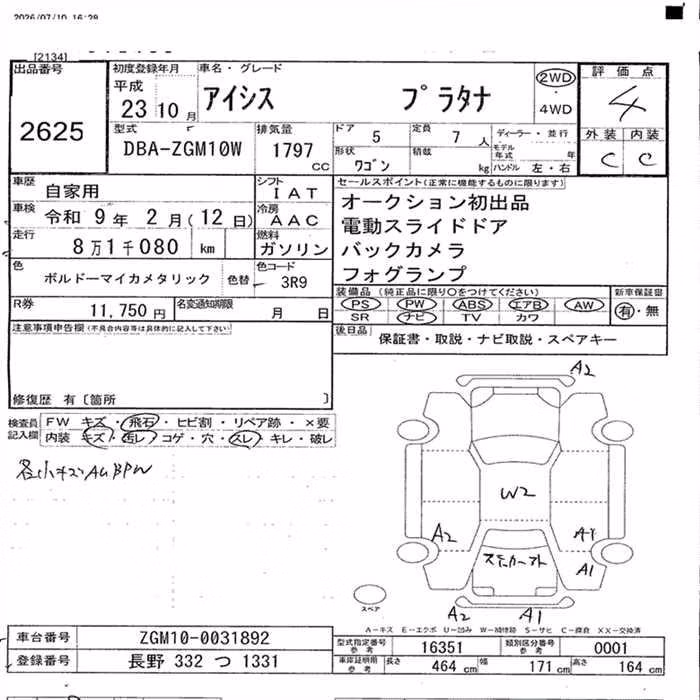 2026/07/10 16:28
[2134]
出品番号
2625
初度登録年月
平成
23 10 月
車名・グレード
アイシス プラタナ
2WD
・
4WD
評価点
4
外装 内装
C C
型式
DBA-ZGM10W
排気量
1797
CC
ドア 5
定員 7 人
形状 ワゴン
積載 kg
ディーラー・並行
モデル年式 年
ハンドル 左・右
車歴 自家用
車検 令和 9 年 2 月 ( 12 日)
走行 8 万 1 千 080 km
シフト IAT
冷房 AAC
燃料 ガソリン
セールスポイント(正常に機能するものに限ります)
オークション初出品
電動スライドドア
バックカメラ
フォグランプ
色 ボルドーマイカメタリック 色替
色コード 3R9
R券 11,750 円
名変通知期限 月 日
装備品 (純正品に限り○をつけてください)
PS PW ABS エアB AW
SR ナビ TV カワ
新車保証書
有・無
後日品 保証書・取説・ナビ取説・スペアキー
注意事項申告欄(不具合内容等は具体的に記入して下さい)
修復歴 有〔箇所 〕
検査員記入欄
FW キズ・飛石・ヒビ割・リペア跡・×要
内装 キズ・汚レ・コゲ・穴・スレ・キレ・破レ
A2
W2
A2
A1
A1
A2 A1
スペア
A−キズ E−エクボ U−凹み W−補修跡 S−サビ C−腐食 XX−交換済
車台番号 ZGM10-0031892
登録番号 長野 332 つ 1331
型式指定番号参考 16351
類別区分番号参考 0001
車庫証明用参考 長さ 464 cm 幅 171 cm 高さ 164 cm